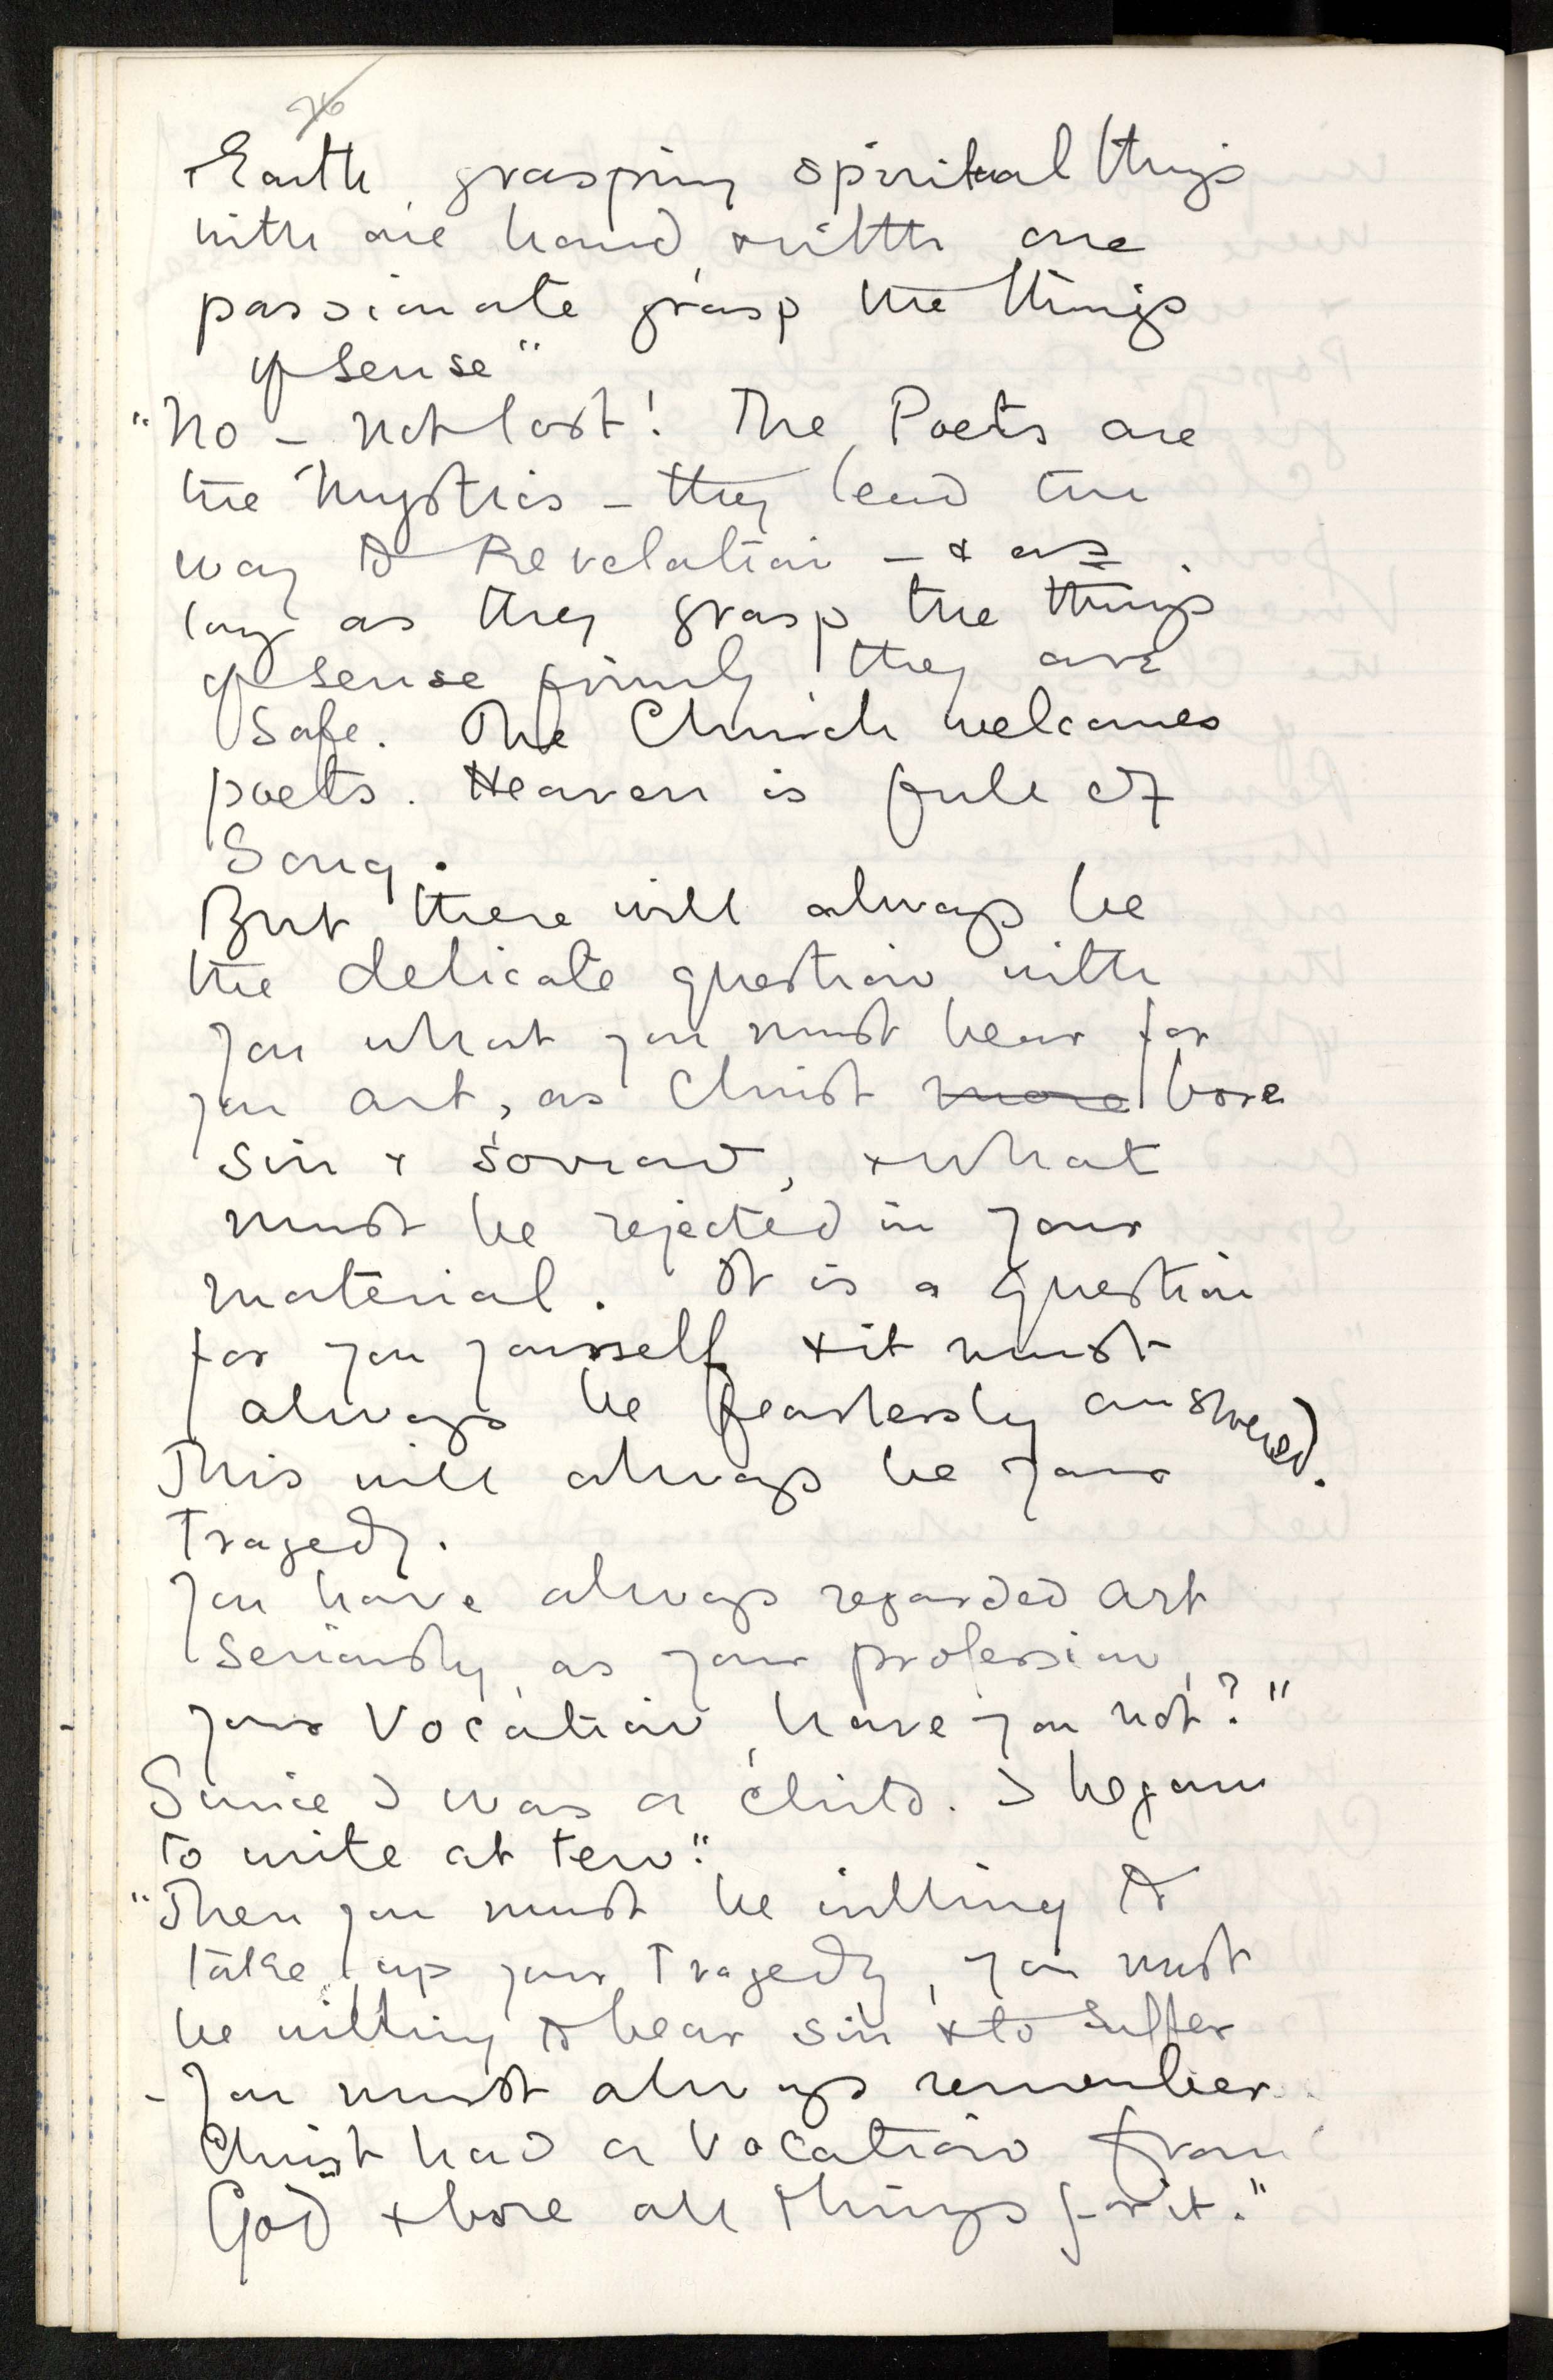 76
Earth, grasping spiritual things
with one hand, & with one
passionate grasp the things
of sense"
"No – not lost! The Poets are
the Mystics – they lead the
way to Revelation – & as
long as they grasp the things
of sense firmly they are
safe. The Church welcomes
poets. Heaven is full of
Song.
But there will always be
the delicate question with
you what you must bear for
you art, as Christ more bore
sin & sorrow, & what
must be rejected in your
material. It is a question
for you yourself & it must
always be fearlessly answered.
This will always be your
Tragedy.
You have always regarded art
seriously, as your profession,
your Vocation, have you not?"
Since I was a child. I began
to write at ten."
"Then you must be willing to
take up your Tragedy, you must
be willing to bear sin & to suffer
– You must always remember
Christ had a Vocation from
God & bore all things for it."